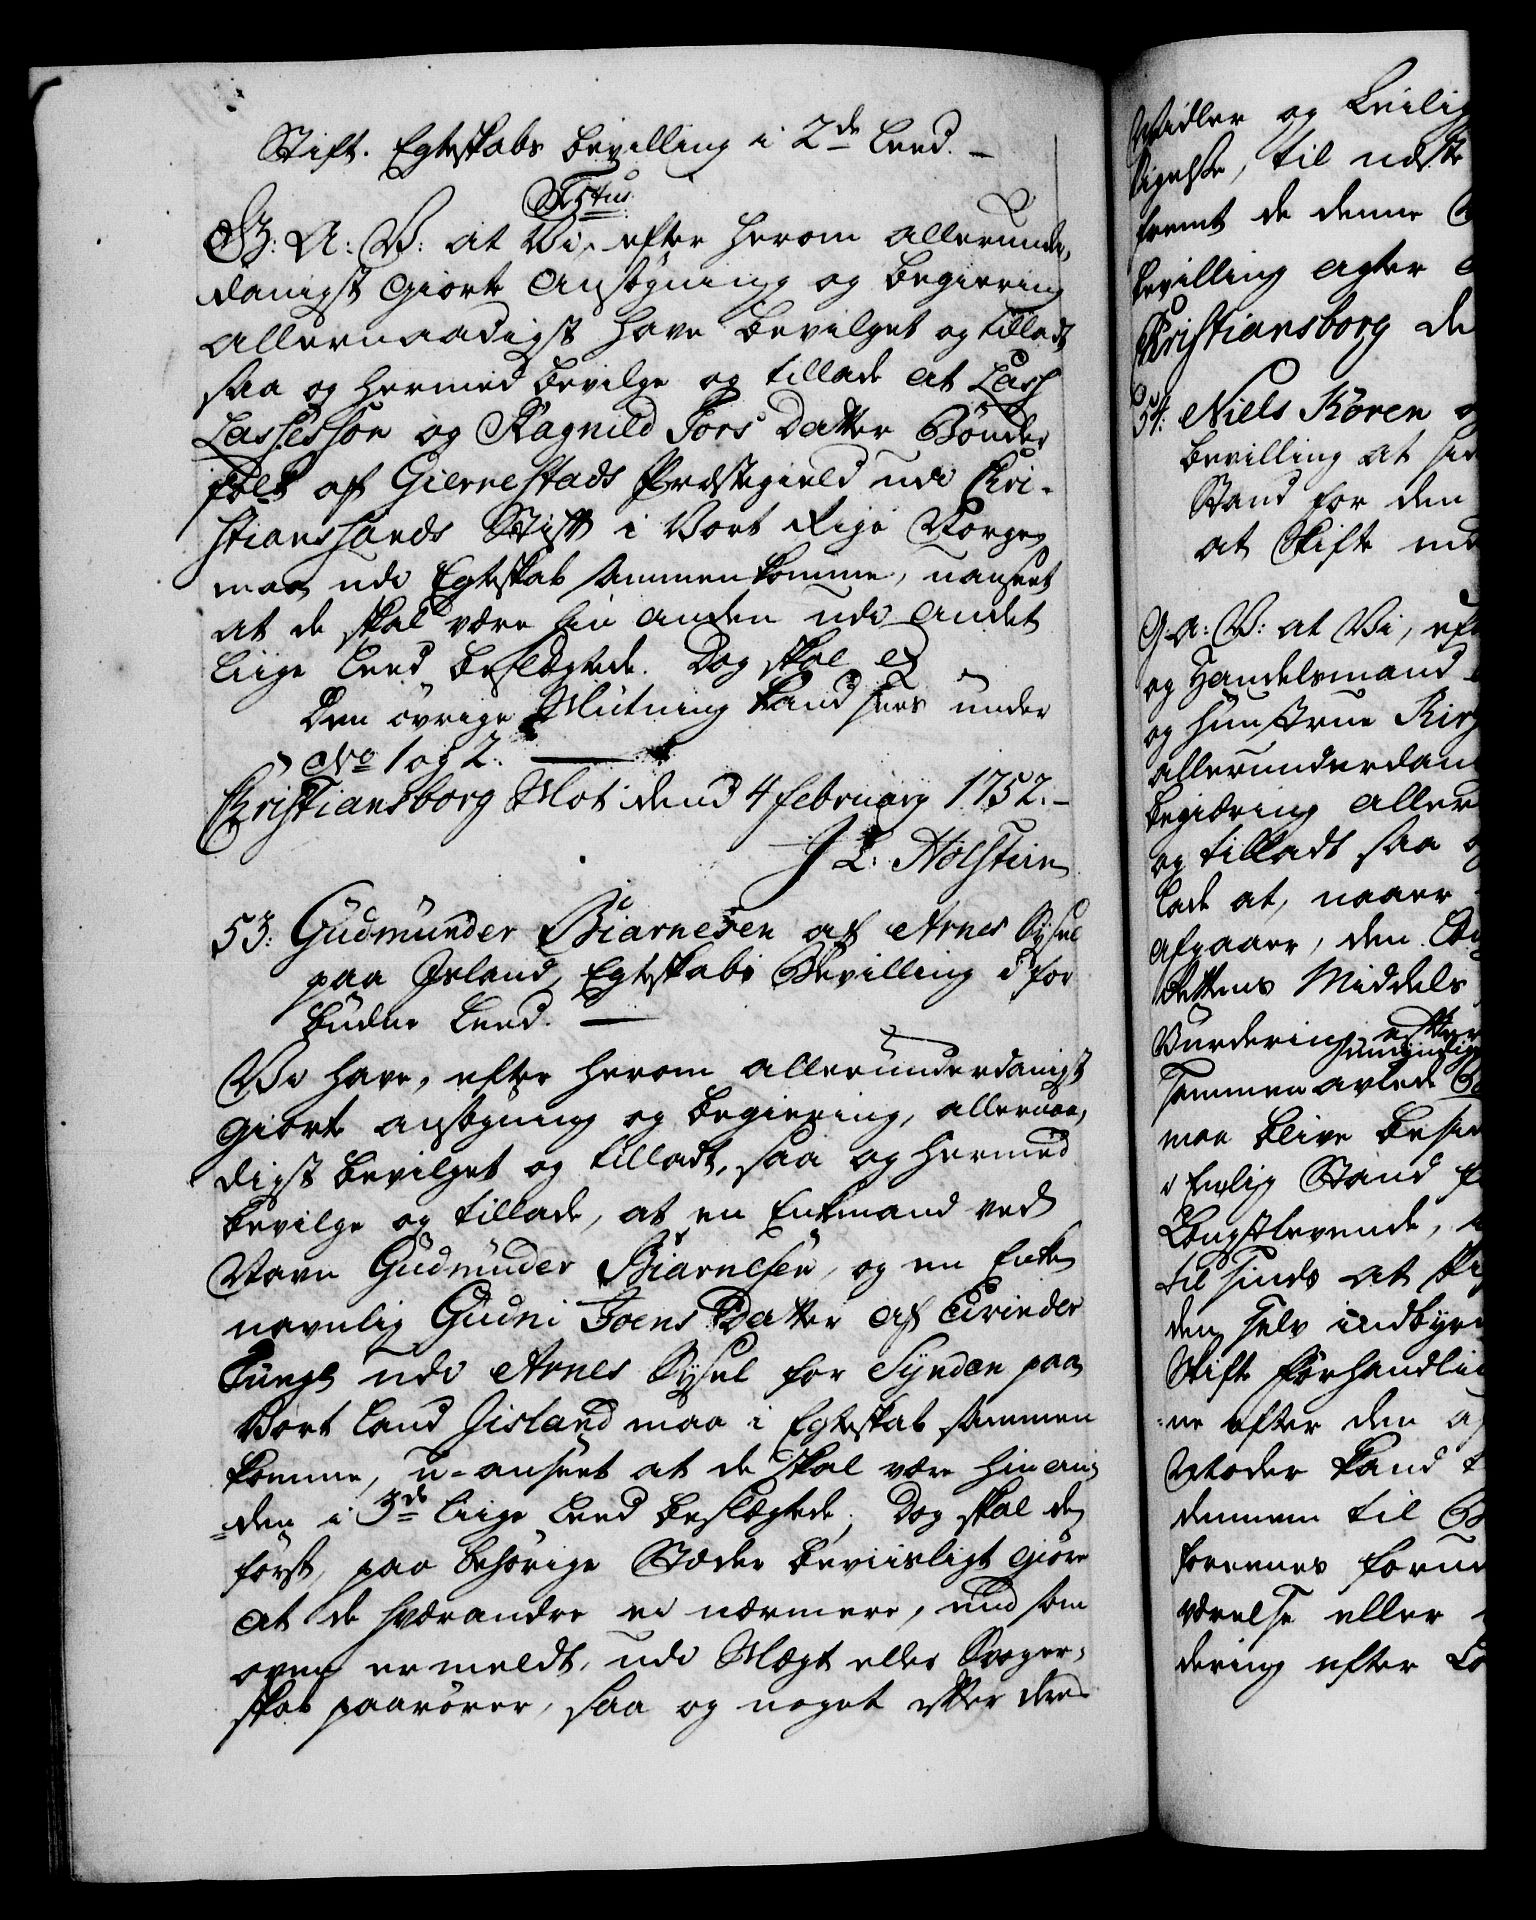 Stift. Egteskabs bevilling i 2de Leed. –
G: A: V: at Vi, efter herom allerunder,
danigst giorte Ansøgning og begiering
allernaadigst have bevilget og tilladt
saa og hermed bevilge og tillade at Lass
Lassessøn og Ragnild Tors Datter Bønder
folk af Gierrestads Præstegield udi Chri-
stianssands Stift i Vort Rige Norge,
maa udi Egteskab sammenkomme, uanseet
at de skal være hin anden udi andet
Liige Leed beslægtede. Dog skal
Den øvrige Slutning kand sees under
No 1 og 2.
Christiansborg Slot dend 4 february 1752. –
J L. Holstein
53. Gudmunder Biarnesen af Arnes Sysel
paa Island, Egteskabs Bevilling i for
budne Leed. –
Vi have, efter herom allerunderdanigst
giorte ansøgning og begiering, allernaa,
digst bevilget og tilladt, saa og hermed
bevilge og tillade, at en Enkemand ved
Navn Gudmunder Biarnesen, og en Enke
navnlig Gudni Joens Datter af
Tunge udi Arnes Sysel for Synden paa
Vort Land Jisland maa i Egteskab sammen
komme, u-anseet at de skal være hin an
den i 3de Liige Leed beslægtede; Dog skal de
først, paa behørige Stæder beviisligt giøre
at de hværandre ei nærmere, end som
oven ermeldt, udi Slægt eller Svoger,
skab paarører, saa og noget efter deres
Midler og Leilig
signelse, til næste
fremt de denne
bevilling agter
Christiansborg de
54. Niels Koren
bevilling at
Stand for den
at Skifte
G A: V: at Vi, eft
og Handelsmand
og Hunstrue Kir
allerunderdan
begiæring aller
og tilladt saa
lade at, naar
afgaaer, den
dettens Middels
Vurdering efter
sammenavlede
maa blive besid
i Enlig Stand
Længstlevende,
til Sinds at
den selv indbyr
Skifte forhandli
ne efter den
Moder kand
dennem til
foreenes
værelse eller
dering efter Lo